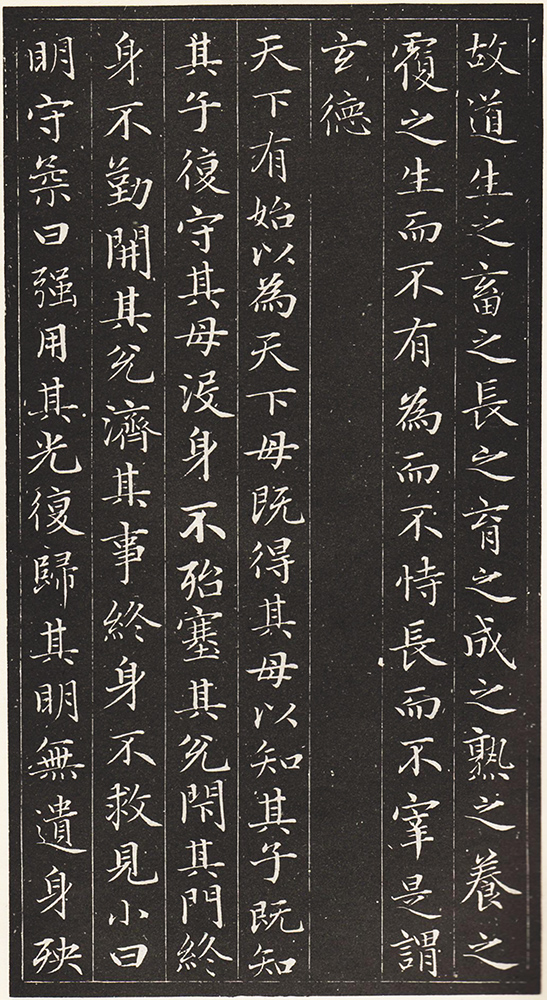 故道生之畜之長之育之成之熟之養之
覆之生而不有為而不恃長而不宰是謂
玄德
天下有始以為天下母既得其母以知其子既知
其子復守其母没身不殆塞其兊閇其門終
身不勤開其兊濟其事終身不救見小曰
明守柔曰强用其光復歸其明無遺身殃